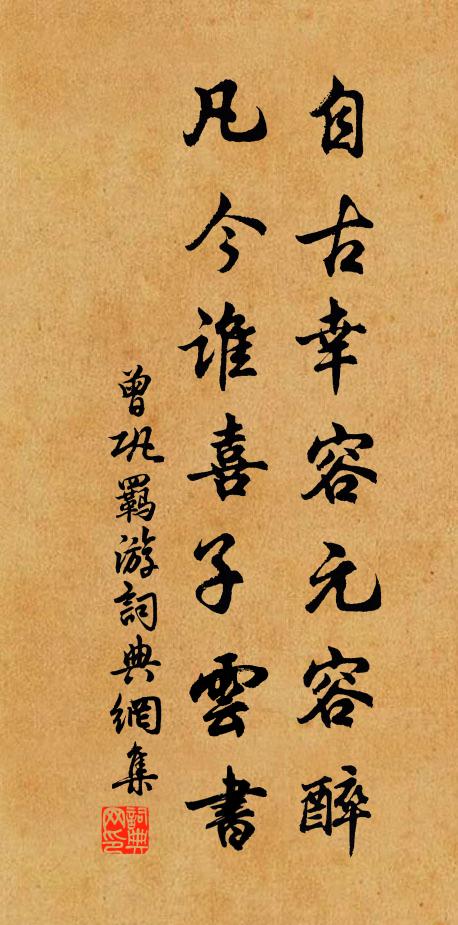 自古幸容元容醉
凡今谁喜子雲書
曾巩羈游詞典網集
詞典网印